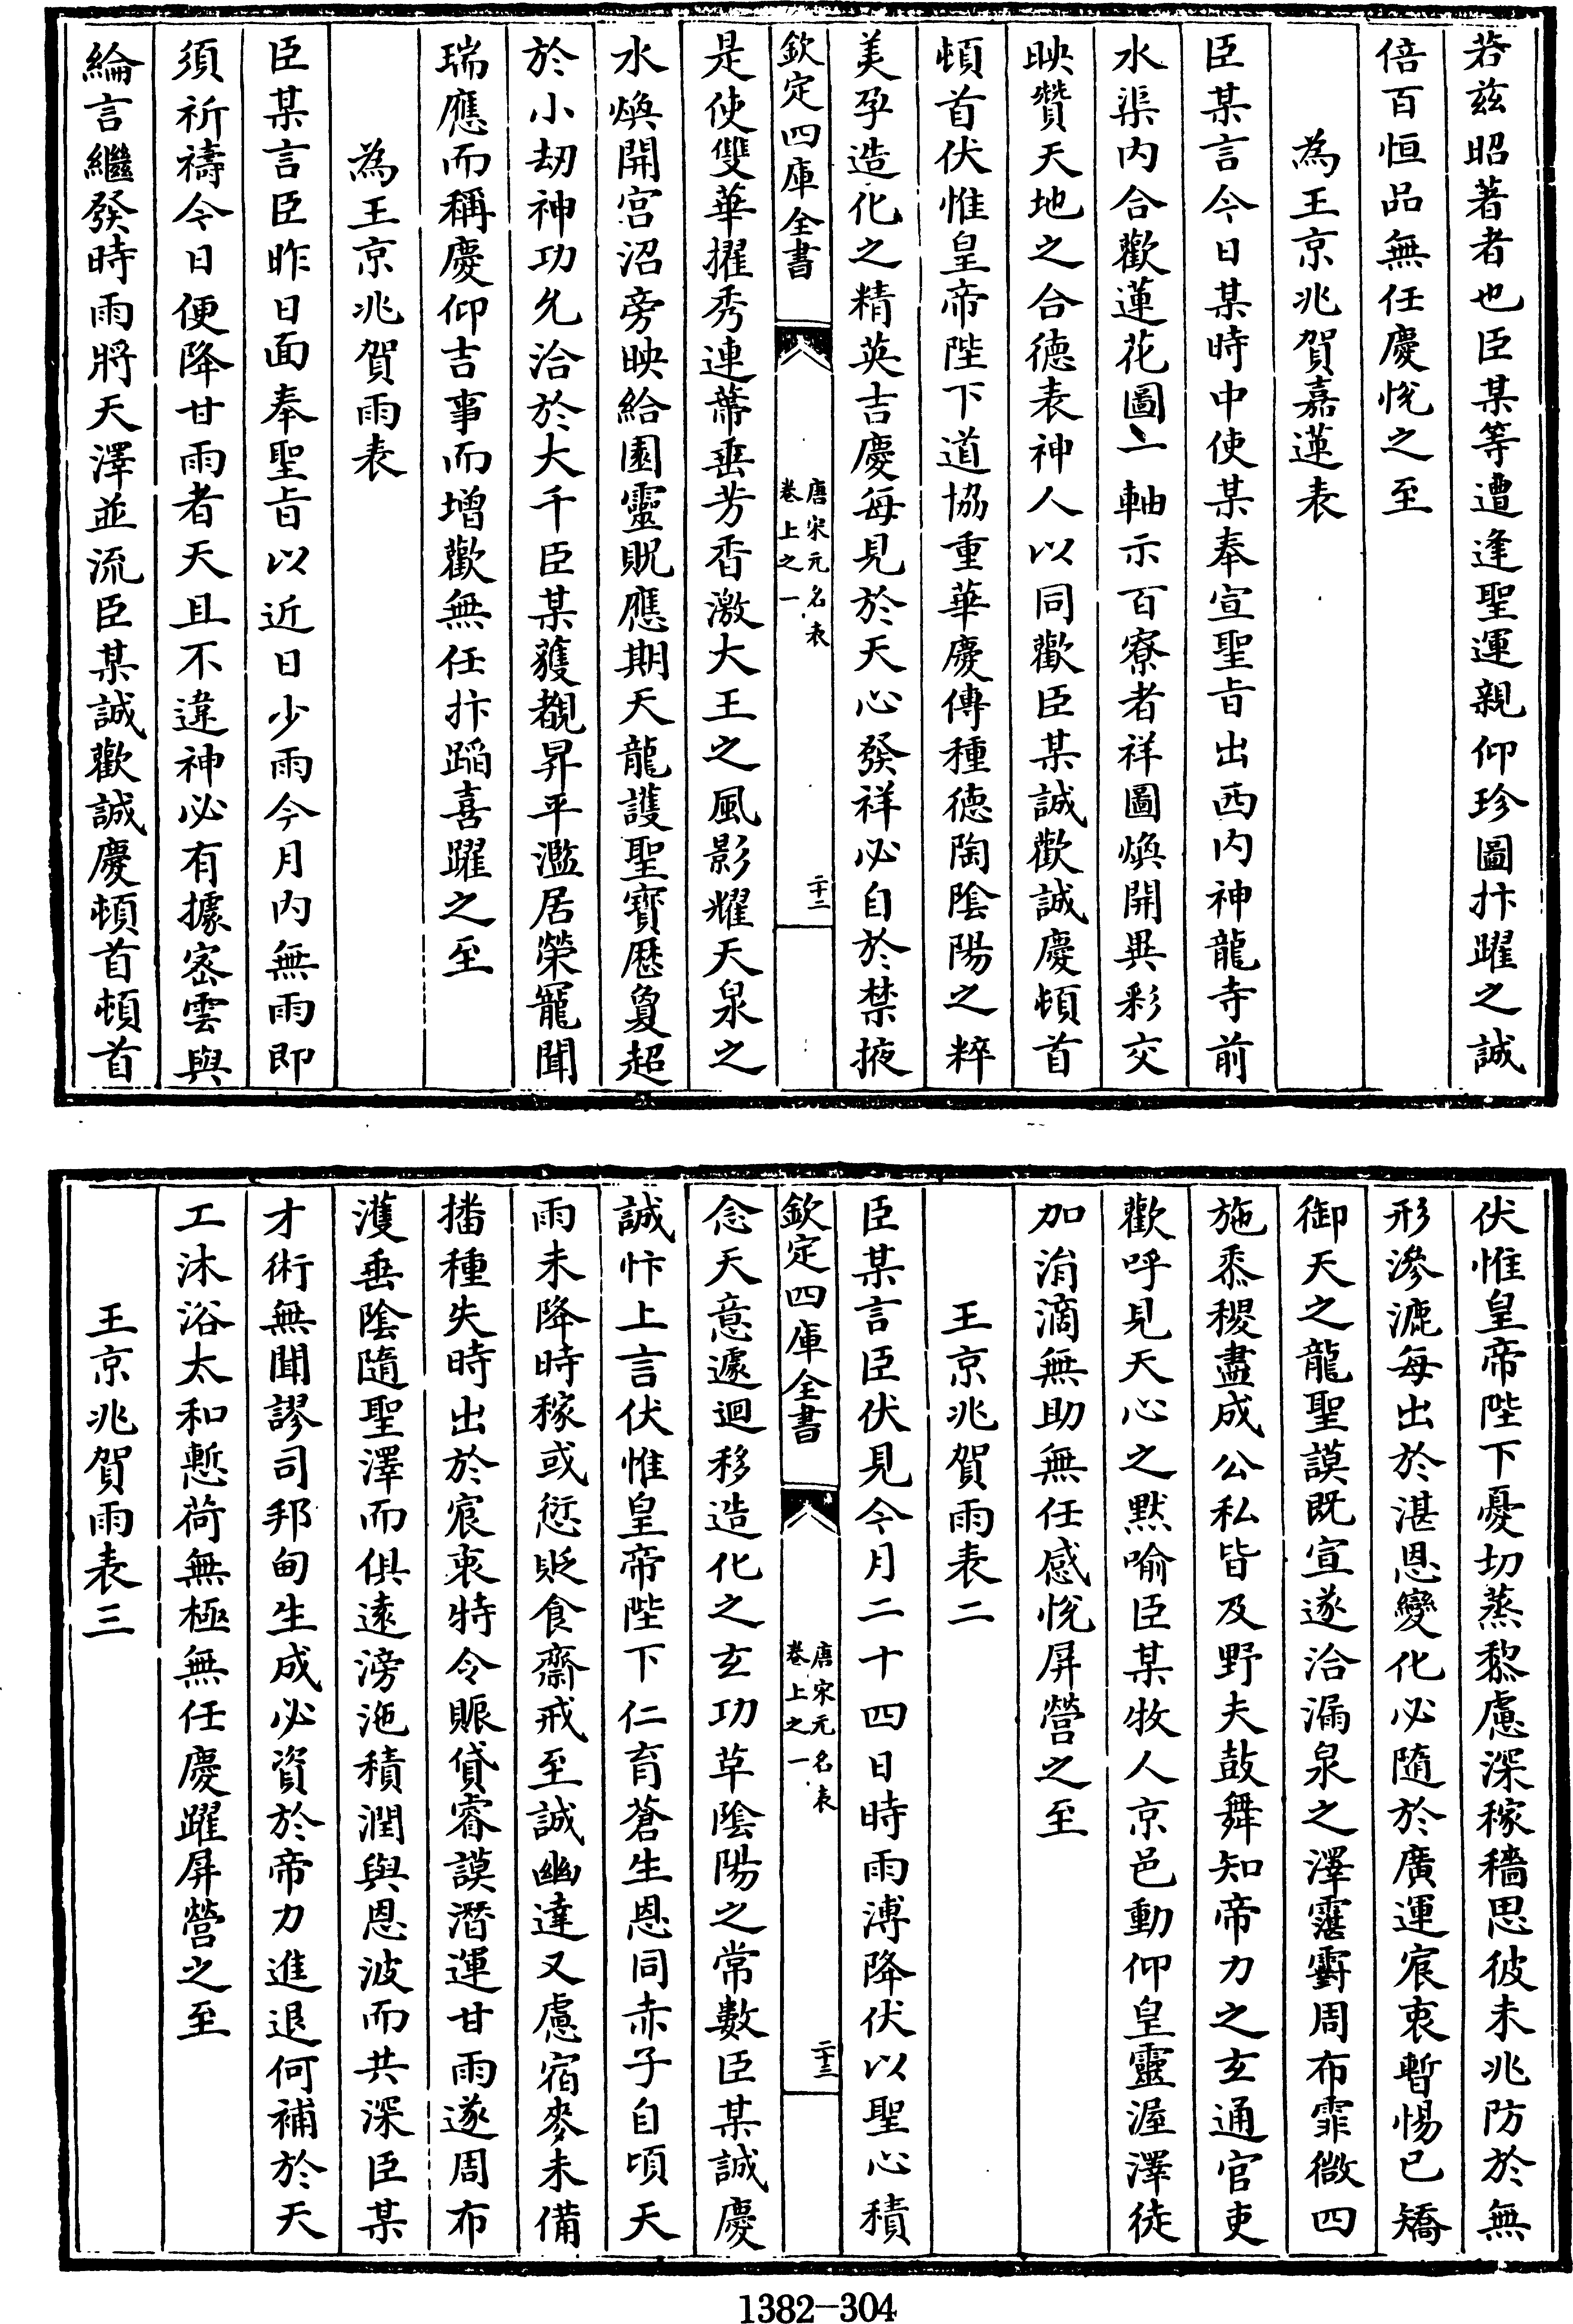 若兹昭著者也臣某等遭逢聖運親仰珍圖抃躍之誠
倍百恒品無任慶悦之至
為王京兆賀嘉蓮表
臣某言今日某時中使某奉宣聖旨出西内神龍寺前
水渠内合歡蓮花圖一軸示百寮者祥圖煥開異彩交
映贊天地之合德表神人以同歡臣某誠歡誠慶頓首
頓首伏惟皇帝陛下道協重華慶傳種德陶陰陽之粹
美孕造化之精英吉慶每見於天心發祥必自於禁掖
欽定四庫全書
唐宋元名表
卷上之一
二十二
是使雙華擢秀連蔕垂芳香激大王之風影耀天泉之
水煥開宫沼旁映給園靈貺應期天龍護聖寳厯夐超
於小刼神功允洽於大千臣某獲覩昇平濫居榮寵聞
瑞應而稱慶仰吉事而增歡無任抃蹈喜躍之至
為王京兆賀雨表
臣某言臣昨日面奉聖旨以近日少雨今月内無雨即
須祈禱今日便降甘雨者天且不違神必有據密雲與
綸言繼發時雨將天澤並流臣某誠歡誠慶頓首頓首
伏惟皇帝陛下憂切蒸黎慮深稼穡思彼未兆防於無
形滲漉每出於湛恩變化必隨於廣運宸衷暫惕已矯
御天之龍聖謨既宣遂洽漏泉之澤霮䨴周布霏微四
施黍稷盡成公私皆及野夫鼓舞知帝力之玄通官吏
歡呼見天心之默喻臣某牧人京邑動仰皇靈渥澤徒
加涓滴無助無任感悦屏營之至
王京兆賀雨表二
臣某言臣伏見今月二十四日時雨溥降伏以聖心積
欽定四庫全書
唐宋元名表
卷上之一
二十三
念天意遽迴移造化之玄功革陰陽之常數臣某誠慶
誠忭上言伏惟皇帝陛下仁育蒼生恩同赤子自頃天
雨未降時稼或愆貶食齋戒至誠幽達又慮宿麥未備
播種失時出於宸衷特令賑貸睿謨潛運甘雨遂周布
濩垂陰隨聖澤而俱遠滂沲積潤與恩波而共深臣某
才術無聞謬司邦甸生成必資於帝力進退何補於天
工沐浴太和慙荷無極無任慶躍屏營之至
王京兆賀雨表三
1382-304